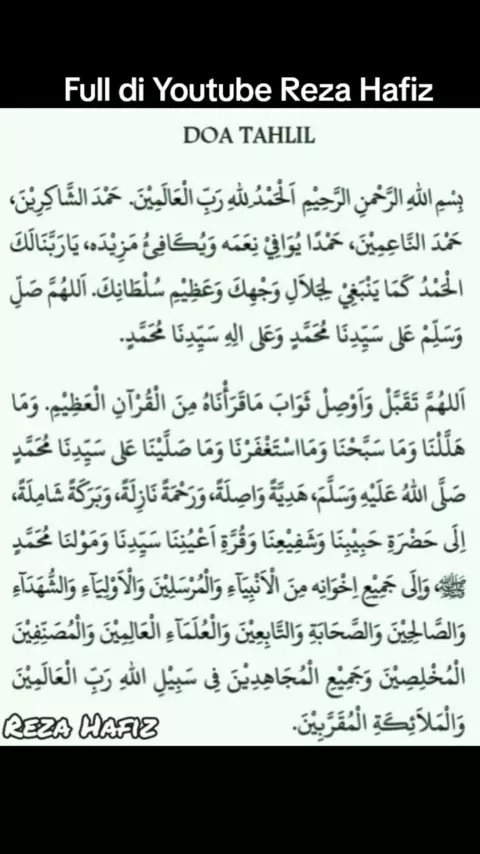 Full di Youtube Reza Hafiz
DOA TAHLIL
بِسْمِ اللهِ الرَّحْمٰنِ الرَّحِيْمِ اَلْحَمْدُ ِللهِ رَبِّ الْعَالَمِيْنَ. حَمْدَ الشَّاكِرِيْنَ،
حَمْدَ النَّاعِمِيْنَ، حَمْدًا يُوَافِيْ نِعَمَه وَيُكَافِئُ مَزِيْدَه، يَارَبَّنَالَكَ
الْحَمْدُ كَمَا يَنْبَغِيْ لِجَلاَلِ وَجْهِكَ وَعَظِيْمِ سُلْطَانِكَ. اَللهُمَّ صَلِّ
وَسَلِّمْ عَلى سَيِّدِنَا مُحَمَّدٍ وَعَلى الِهِ سَيِّدِنَا مُحَمَّدٍ.
اَللهُمَّ تَقَبَّلْ وَاَوْصِلْ ثَوَابَ مَاقَرَأْنَاهُ مِنَ الْقُرْآنِ الْعَظِيْمِ. وَمَا
هَلَّلْنَا وَمَا سَبَّحْنَا وَمَااسْتَغْفَرْنَا وَمَا صَلَّيْنَا عَلى سَيِّدِنَا مُحَمَّدٍ
صَلَّى اللهُ عَلَيْهِ وَسَلَّمَ، هَدِيَّةً وَاصِلَةً، وَرَحْمَةً نَازِلَةً، وَبَرَكَةً شَامِلَةً،
اِلَى حَضْرَةِ حَبِيْبِنَا وَشَفِيْعِنَا وَقُرَّةِ اَعْيُنِنَا سَيِّدِنَا وَمَوْلنَا مُحَمَّدٍ
ﷺ، وَاِلَى جَمِيْعِ اِخْوَانِه مِنَ الْاَنْبِيَآءِ وَالْمُرْسَلِيْنَ وَالْاَوْلِيَآءِ وَالشُّهَدَآءِ
وَالصَّالِحِيْنَ وَالصَّحَابَةِ وَالتَّابِعِيْنَ وَالْعُلَمَآءِ الْعَالِمِيْنَ وَالْمُصَنِّفِيْنَ
الْمُخْلِصِيْنَ وَجَمِيْعِ الْمُجَاهِدِيْنَ فِى سَبِيْلِ اللهِ رَبِّ الْعَالَمِيْنَ
وَالْمَلاَئِكَةِ الْمُقَرَّبِيْنَ.
REZA HAFIZ